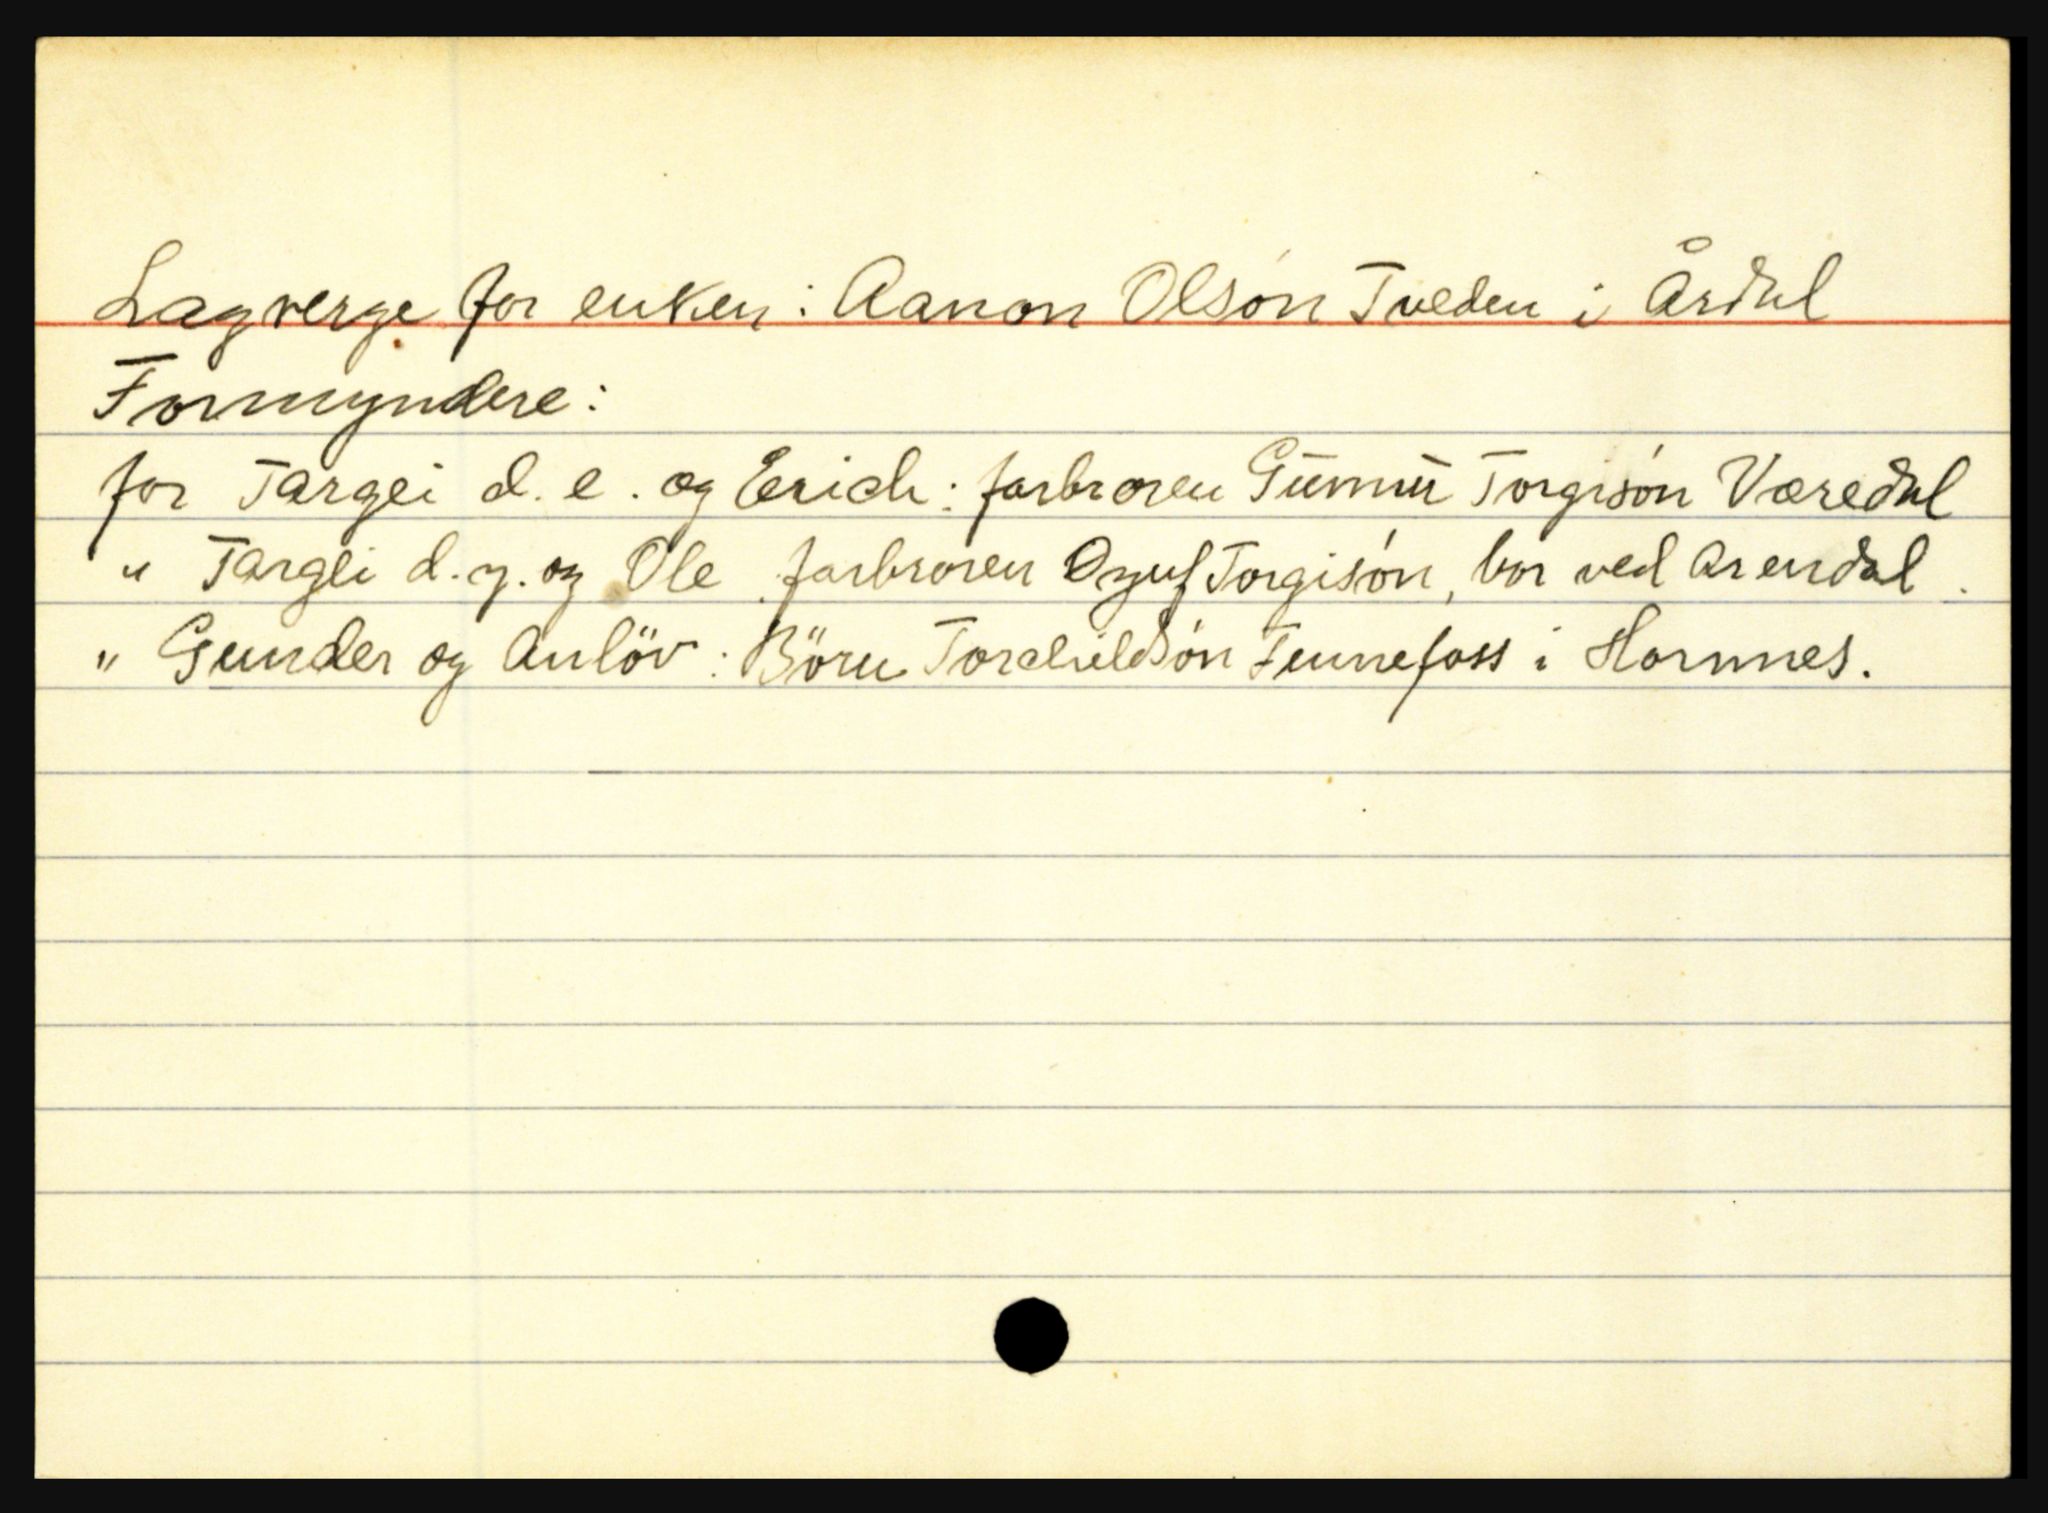 Lagverge for enken: Aanon Olsón Tveden i Årdal
Formyndere:
for Targei d. e. og Erich: farbroren Gunnu Torgisón Væredal
" Targei d. y. og Ole farbroren Torgisón, bor ved Arendal.
" Gunder og Anlöv: Börn TorchildSón Fennefoss i Hornnes.